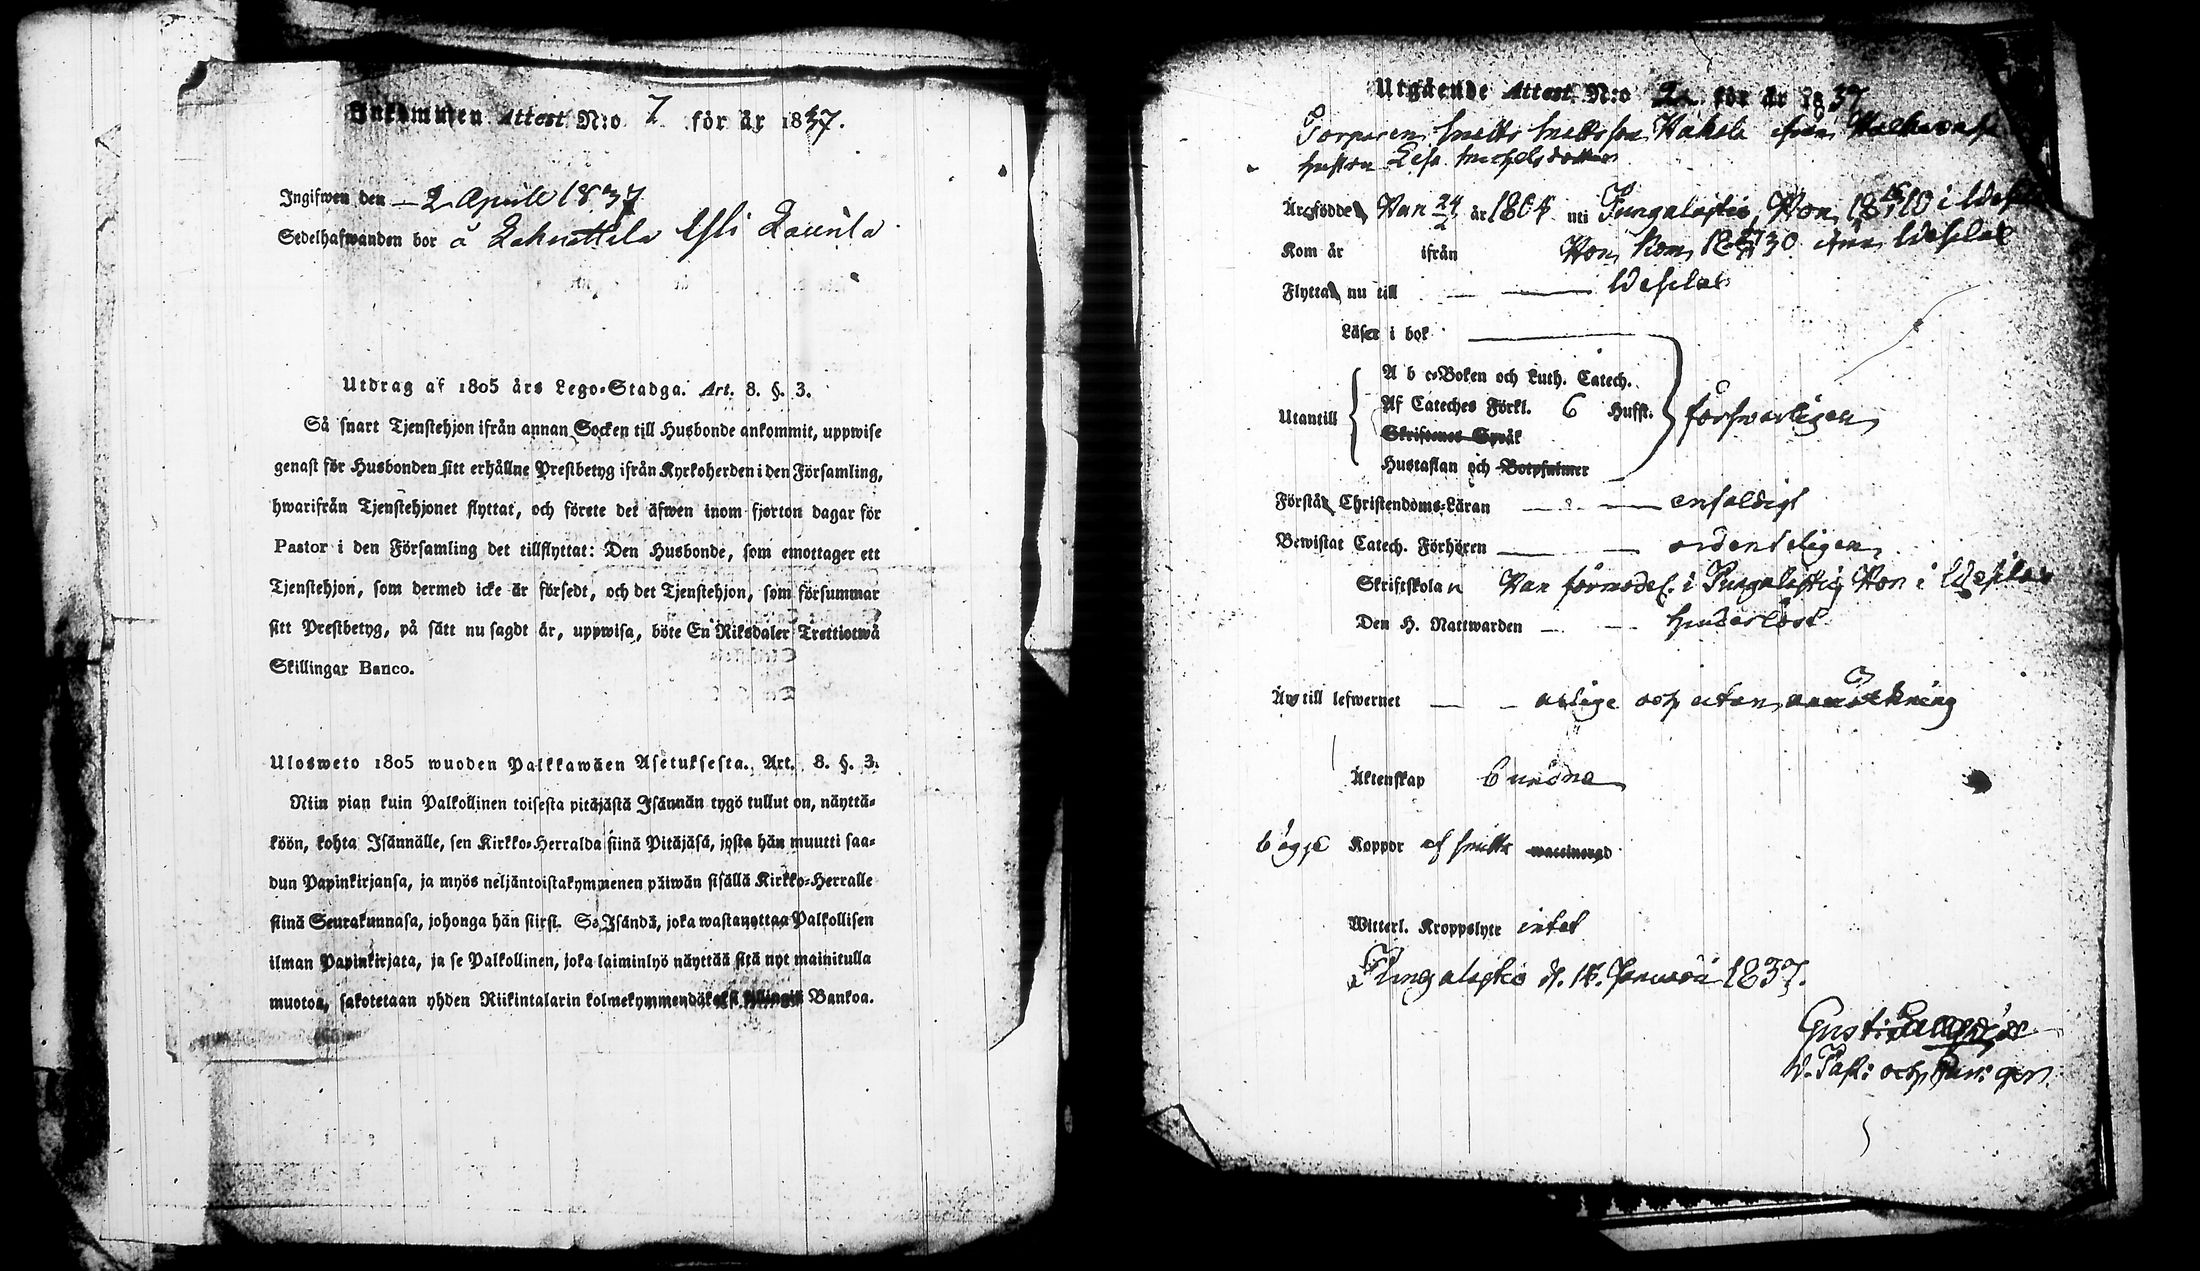 Inkommen Attest N:o 7 för år 1837.
Ingifwen den 2 Aprill 1837
Sedelhafwanden bor å Lahnattila Yli Laurila
Utdrag af 1805 års Lego-Stadga. Art. 8. §. 3.
Så snart Tjenstehjon ifrån annan Socken till Husbonde ankommit, uppwise
genast för Husbonden sitt erhållne Prestbetyg ifrån Kyrkoherden i den Församling,
hwarifrån Tjenstehjonet flyttat, och förete det äfwen inom fjorton dagar för
Pastor i den Församling det tillflyttat: Den Husbonde, som emottager ett
Tjenstehjon, som dermed icke är försedt, och det Tjenstehjon, som försummar
sitt Prestbetyg, på sätt nu sagdt är, uppwisa, böte En Riksdaler Trettiotwå
Skillingar Banco.
Ulosweto 1805 wuoden Palkkawäen Asetuksesta. Art. 8. §. 3.
Niin pian kuin Palkollinen toisesta pitäjästä Isännän tygö tullut on, näyttä-
köön, kohta Isännälle, sen Kirkko-Herralda siinä Pitäjäsä, josta hän muutti saa-
dun Papinkirjansa, ja myös neljäntoistakymmenen päiwän sisällä Kirkko-Herralle
siinä Seurakunnasa, johonga hän siirsi. Se Isändä, joka wastanottaa Palkollisen
ilman Papinkirjata, ja se Palkollinen, joka laiminlyö näyttää sitä nyt mainitulla
muotoa, sakotetaan yhden Riikintalarin kolmekymmendäkaksi killingiä Bankoa.
Utgående Attest N:o för år 1837
Torparen Matts Mattsson Hakola ifrån
hustru Lisa Michelsdotter
Äro födde Han 24/2 år 1804 uti Pungalaitio, Hon i
Kom år ifrån Hon kom ifrån Wesilax
Flytta nu till Wesilax
Läser i bok
Utantill
A b c-Boken och Luth. Catech.
Af Cateches Förkl. 6 Hufst. försvarligen
Skriftenes Språk
Hustaflan och Botpsalmer
Förstå Christendoms-Läran enfaldigt
Bewistat Catech. Förhören ordenteligen
Skriftskolan Han förmodel. i Pungalaitio Hon i Wesilax
Den H. Nattwarden hinderlöst
Äro till lefwernet ärlige och utan anmärkning
Äktenskap bundna
bägge Koppor af smitta waccinerad
Witterl. Kroppslyte intet
Pungalaitio d. Januari 1837.
Gust:
V. Past: och